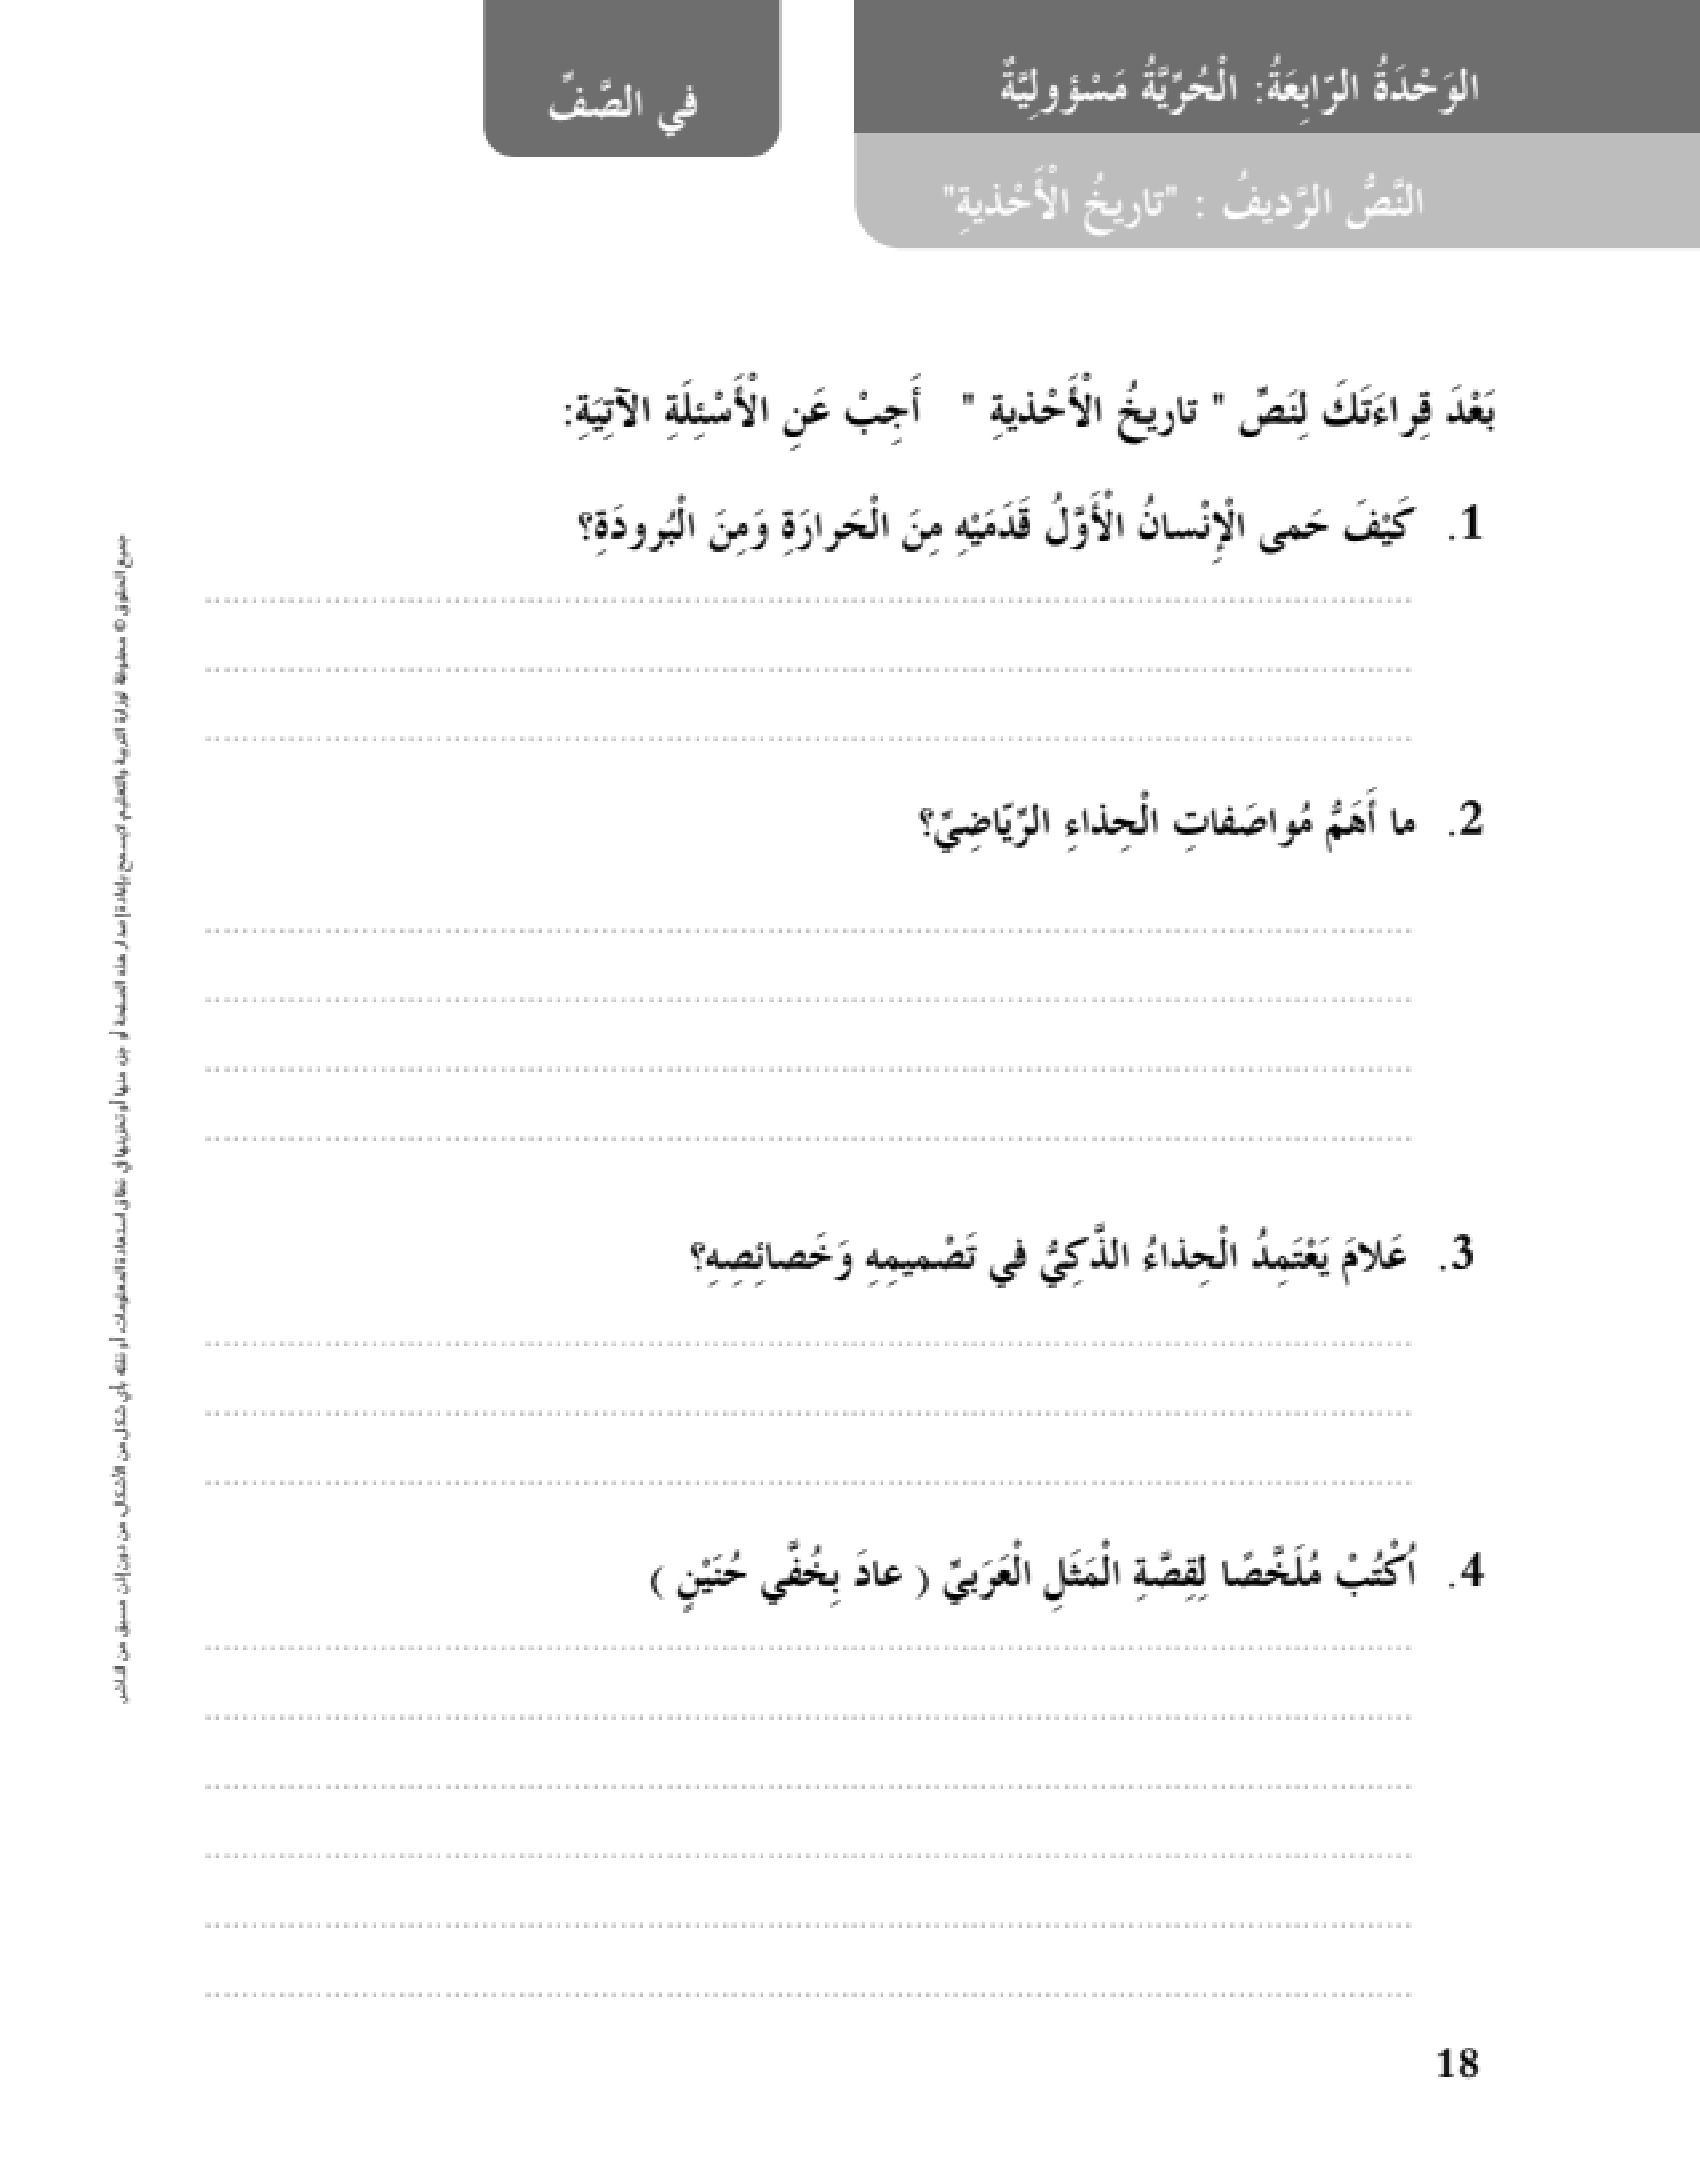 الوَحْدَةُ الرّابِعَةُ: الْحُرِّيَّةُ مَسْؤولِيَّةٌ
في الصَّفِّ
النَّصُّ الرَّديفُ : "تاريخُ الْأَحْذيةِ"
بَعْدَ قِراءَتَكَ لِنَصِّ " تاريخُ الْأَحْذيةِ " أَجِبْ عَنِ الْأَسْئِلَةِ الآتِيَةِ:
1. كَيْفَ حَمى الْإِنْسانُ الْأَوَّلُ قَدَمَيْهِ مِنَ الْحَرارَةِ وَمِنَ الْبُرودَةِ؟
2. ما أَهَمُّ مُواصَفاتِ الْحِذاءِ الرِّيّاضِيِّ؟
3. عَلامَ يَعْتَمِدُ الْحِذاءُ الذَّكِيُّ في تَصْميمِهِ وَخَصائِصِهِ؟
4. اُكْتُبْ مُلَخَّصًا لِقِصَّةِ الْمَثَلِ الْعَرَبيِّ ( عادَ بِخُفَّي حُنَيْنٍ )
جميع الحقوق © محفوظة لوزارة التربية والتعليم لايسمح بإعادة إصدار هذه الصفحة أو جزء منها أو تخزينها في نطاق استعادة المعلومات، أو نقله بأي شكل من الأشكال، من دون إذن مسبق من الناشر.
18